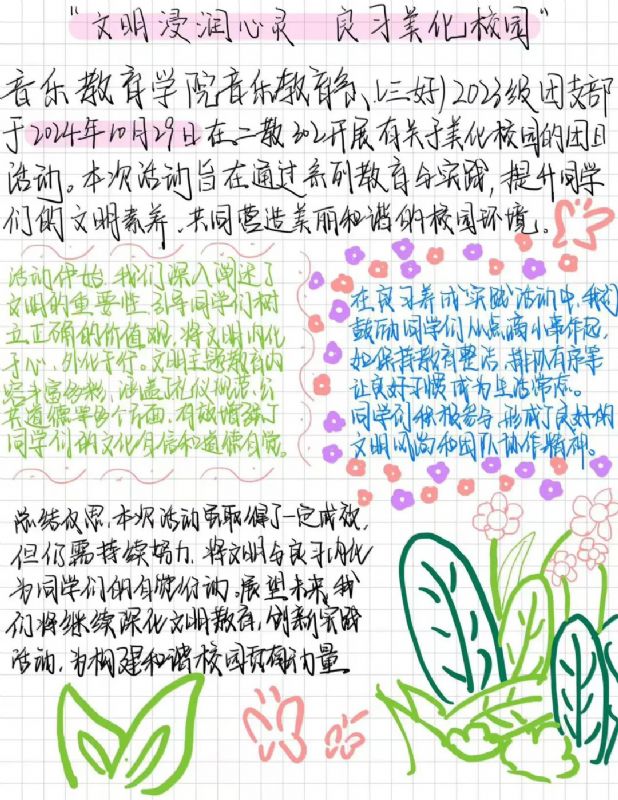 "文明浸润心灵 良习美化校园"
音乐教育学院音乐教育系、(三好)2023级团支部
于2024年10月29日在二教302开展有关于美化校园的团日
活动。本次活动旨在通过系列教育与实践,提升同学
们的文明素养、共同营造美丽和谐的校园环境。
活动伊始,我们深入阐述了
文明的重要性,引导同学们树
立正确的价值观,将文明内化
于心、外化于行。文明主题教育内
容丰富多彩,涵盖礼仪规范、公
共道德等多个方面,有效增强了
同学们的文化自信和道德自觉。
在良习养成实践活动中,我们
鼓励同学们从点滴小事作起,
如保持教育整洁、排队有序等
让良好习惯成为生活常态。
同学们积极参与,形成了良好的
文明风尚和团队协作精神。
总结反思,本次活动虽取得了一定成效,
但仍需持续努力,将文明与良习内化
为同学们的自觉行动。展望未来,我
们将继续深化文明教育,创新实践
活动,为构建和谐校园贡献力量。